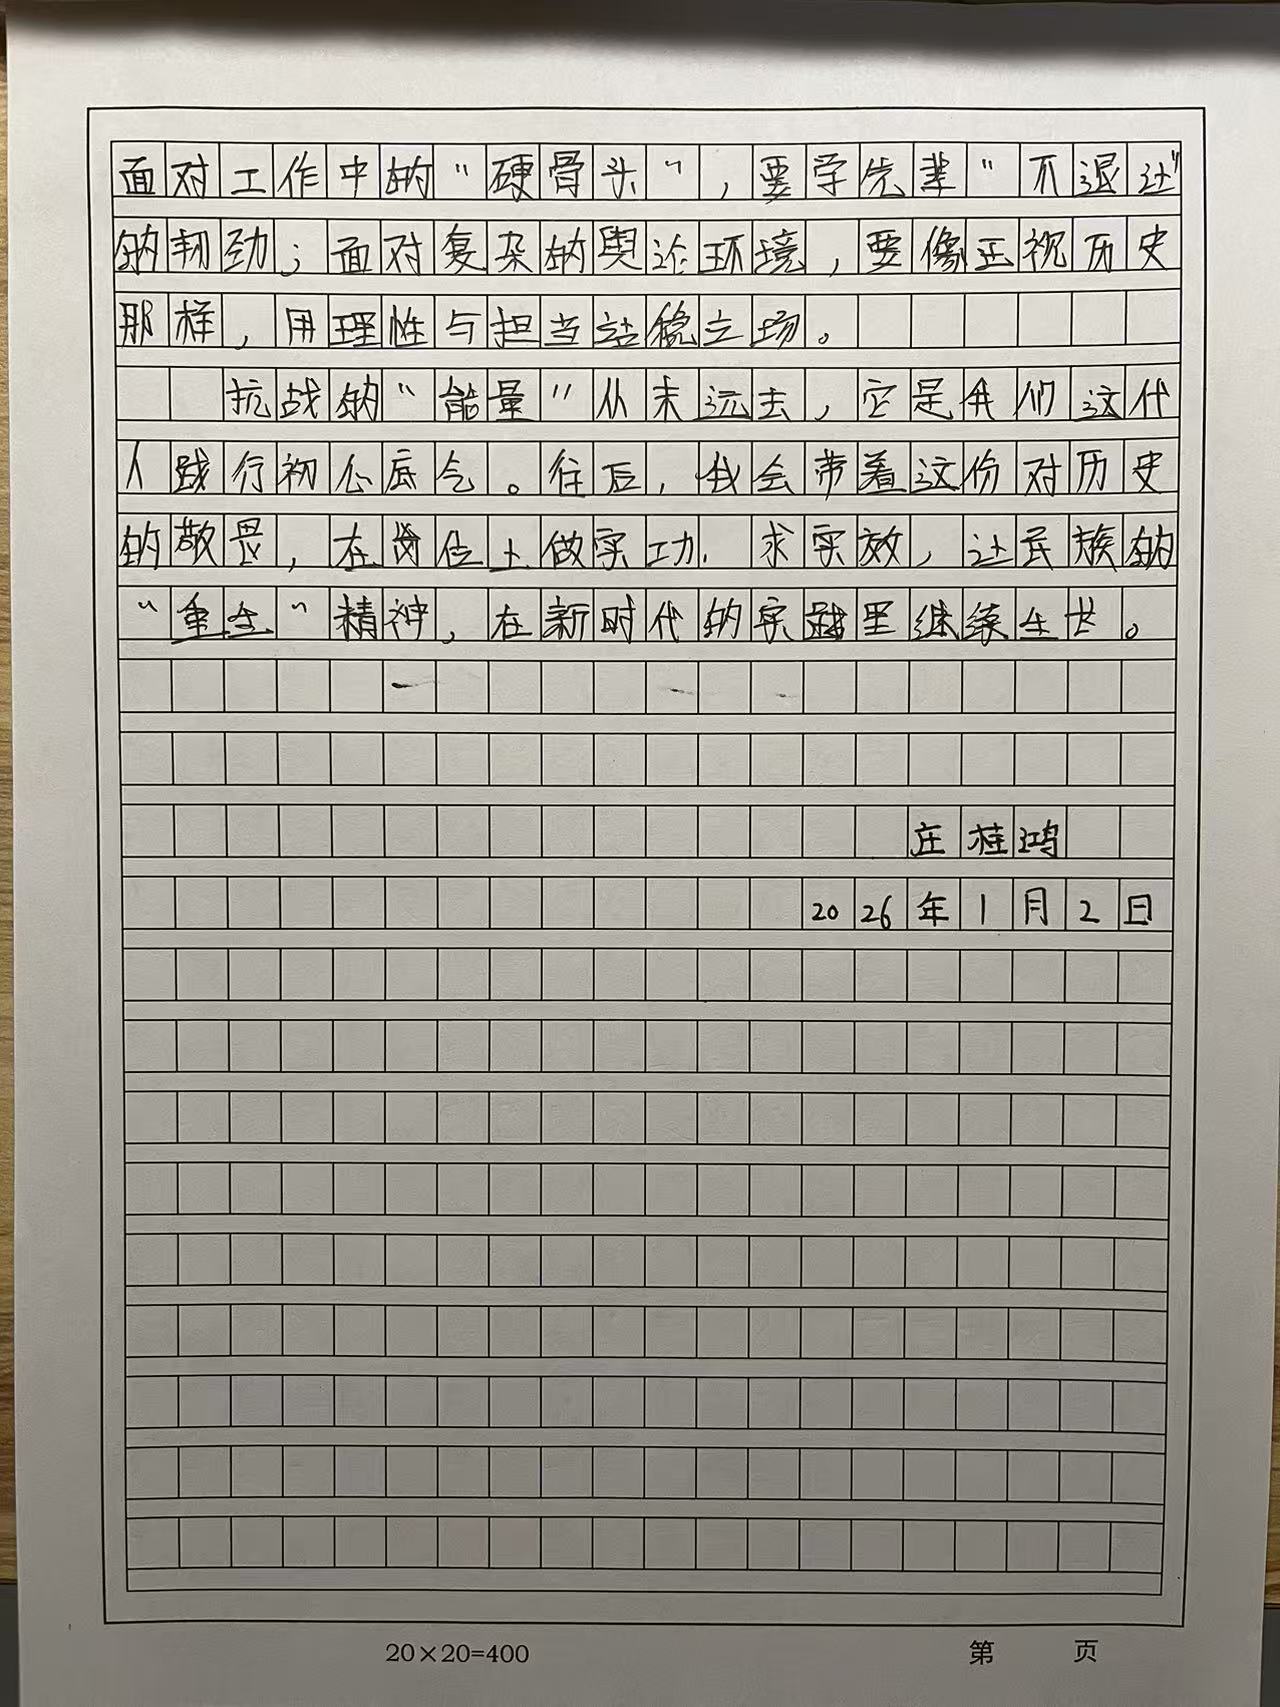 面对工作中的“硬骨头”，要学先辈“不退让”
的韧劲；面对复杂的舆论环境，要像正视历史
那样，用理性与担当站稳立场。
抗战的“能量”从未远去，它是我们这代
人践行初心底气。往后，我会带着这份对历史
的敬畏，在岗位上做实功、求实效，让民族的
“重生”精神，在新时代的实践里继续生世。
庄桂鸿
2026年1月2日
20×20=400
第 页